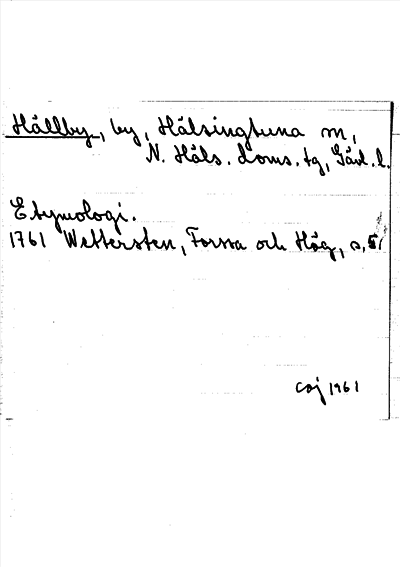 Hällby, by, Hälsingtuna sn,
N. Häls. doms. tg, Gävl. l.
Etymologi.
1761 Wettersten, Forssa och Hög, s.
caj 1961